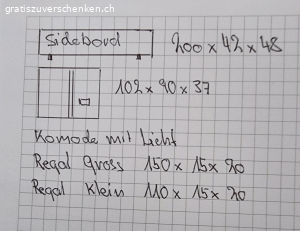 gratiszuverschenken.ch
Sidebord 200 x 42 x 48
102 x 90 x 37
Komode mit Licht
Regal Gross 150 x 15 x 20
Regal Klein 110 x 15 x 20